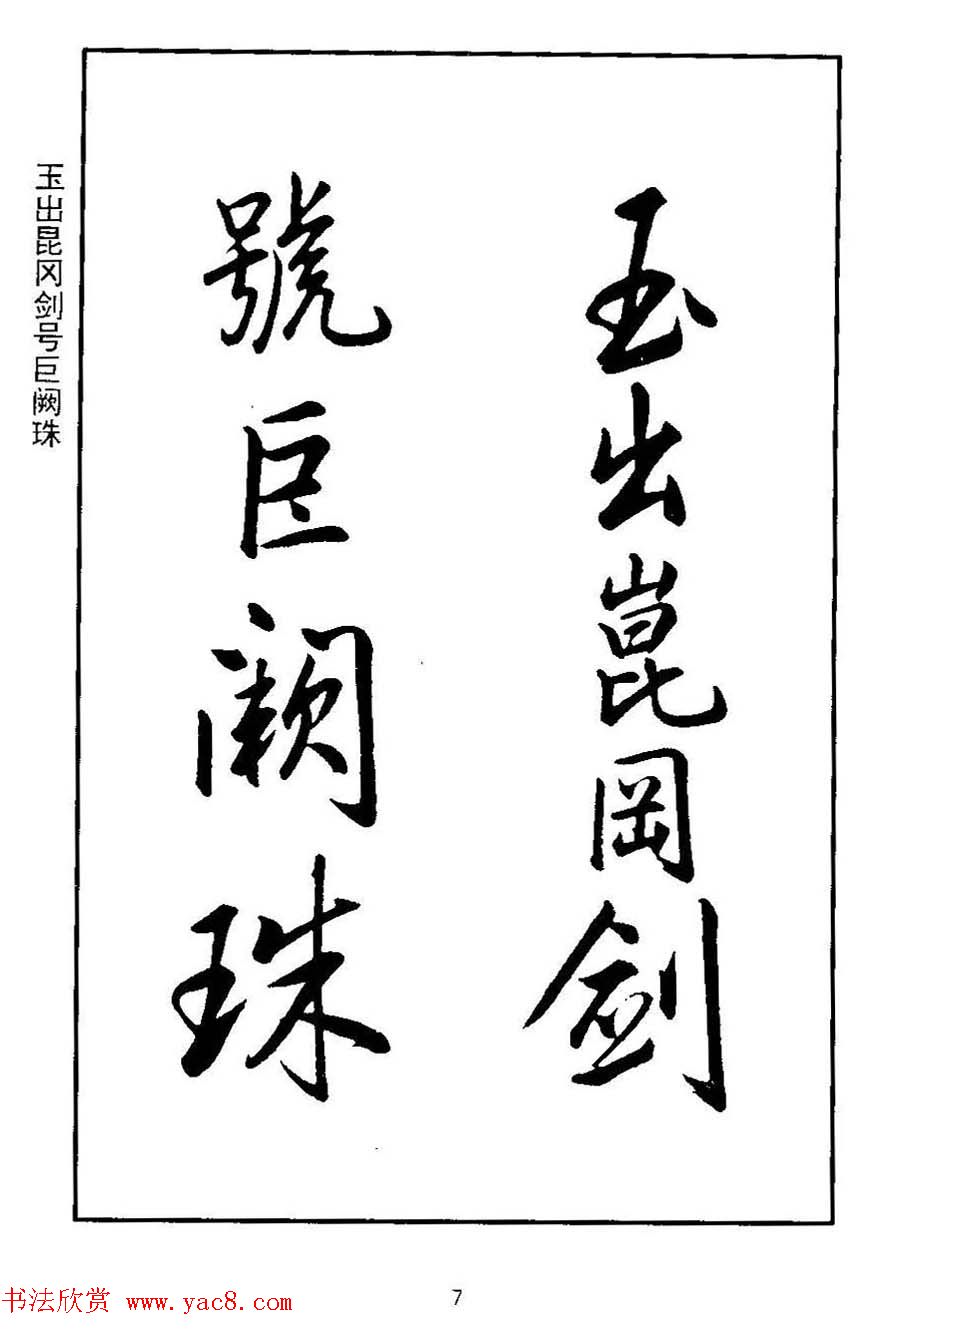 玉出崑岡剑
號巨阙珠
玉出昆冈剑号巨阙珠
书法欣赏 www.yac8.com
7